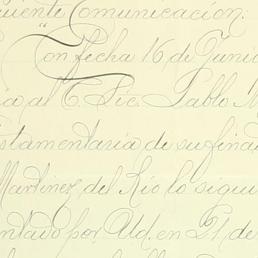 uiente Comunicación:
"Con fecha 16 de Junio
al C. Lic. Pablo M
stamentaria de su fina
Martinez del Rio lo sigui
ntado por Ud. en 21 de